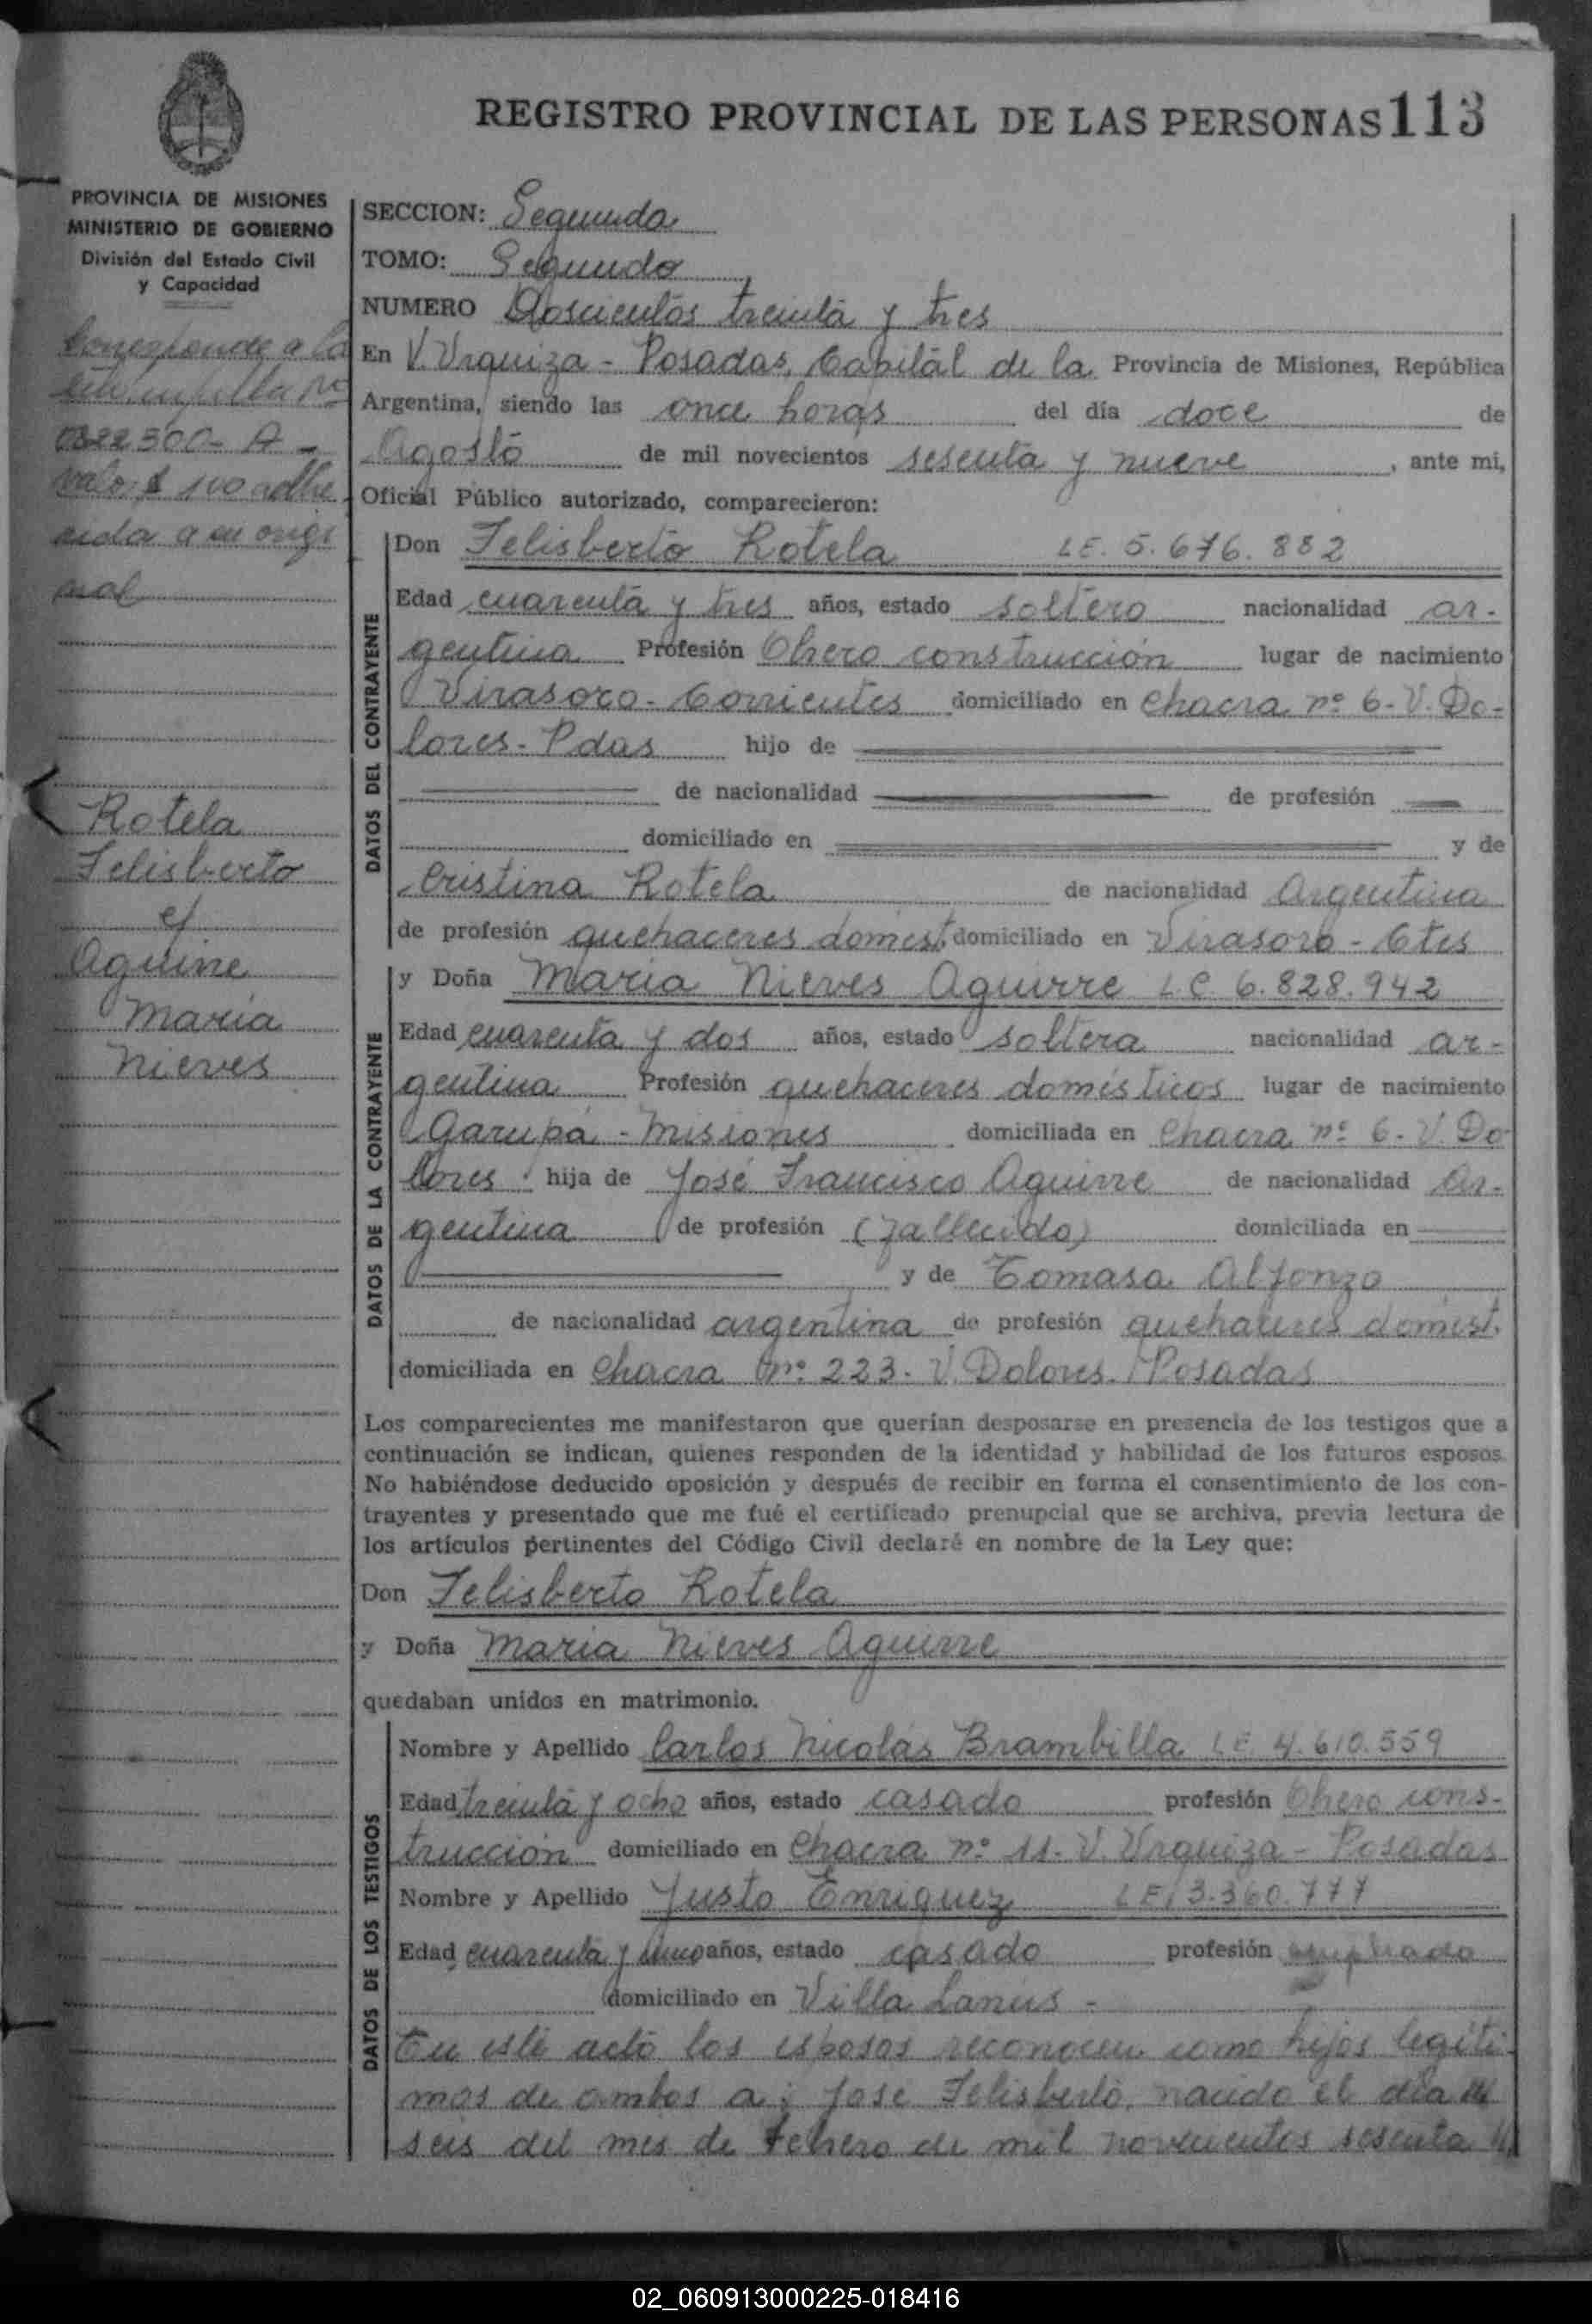 REGISTRO PROVINCIAL DE LAS PERSONAS 113
PROVINCIA DE MISIONES
MINISTERIO DE GOBIERNO
División del Estado Civil
y Capacidad
Corresponde a la
estampilla No
0322300- A -
valor $ 100 adhe
rida a su origi
nal
Rotela
Felisberto
y
Aguirre
Maria
Nieves
SECCION: Segunda
TOMO: Segundo
NUMERO Doscientos treinta y tres
En V. Urquiza - Posadas, Capital de la Provincia de Misiones, República
Argentina, siendo las once horas del día doce de
Agosto de mil novecientos sesenta y nueve, ante mi,
Oficial Público autorizado, comparecieron:
DATOS DEL CONTRAYENTE
Don Felisberto Rotela L.E. 5.676.882
Edad cuarenta y tres años, estado soltero nacionalidad ar-
gentina Profesión Obrero construcción lugar de nacimiento
Virasoro - Corrientes domiciliado en Chacra nº 6- V. Do-
lores - Pdas hijo de
de nacionalidad de profesión
domiciliado en y de
Cristina Rotela de nacionalidad Argentina
de profesión quehaceres domést. domiciliado en Virasoro - Ctes
DATOS DE LA CONTRAYENTE
y Doña Maria Nieves Aguirre L.C. 6.828.942
Edad cuarenta y dos años, estado soltera nacionalidad ar-
gentina Profesión quehaceres domésticos lugar de nacimiento
Garupá - Misiones domiciliada en Chacra nº 6- V. Do
lores hija de José Francisco Aguirre de nacionalidad Ar-
gentina de profesión (fallecido) domiciliada en
y de Tomasa Alfonzo
de nacionalidad argentina de profesión quehaceres domést.
domiciliada en Chacra nº 223- V. Dolores. Posadas
Los comparecientes me manifestaron que querían desposarse en presencia de los testigos que a
continuación se indican, quienes responden de la identidad y habilidad de los futuros esposos.
No habiéndose deducido oposición y después de recibir en forma el consentimiento de los con-
trayentes y presentado que me fué el certificado prenupcial que se archiva, previa lectura de
los artículos pertinentes del Código Civil declaré en nombre de la Ley que:
Don Felisberto Rotela
y Doña Maria Nieves Aguirre
quedaban unidos en matrimonio.
DATOS DE LOS TESTIGOS
Nombre y Apellido Carlos Nicolás Brambilla L.E. 4.610.559
Edad treinta y ocho años, estado casado profesión Obrero cons-
trucción domiciliado en Chacra nº 11- V. Urquiza - Posadas
Nombre y Apellido Justo Enriquez L.E. 3.360.777
Edad cuarenta y cinco años, estado casado profesión empleado
domiciliado en Villa Lanús -
En este acto los esposos reconocen como hijos legiti-
mos de ambos a: José Felisberto, nacido el día
seis del mes de Febrero de mil novecientos sesenta
02_060913000225-018416